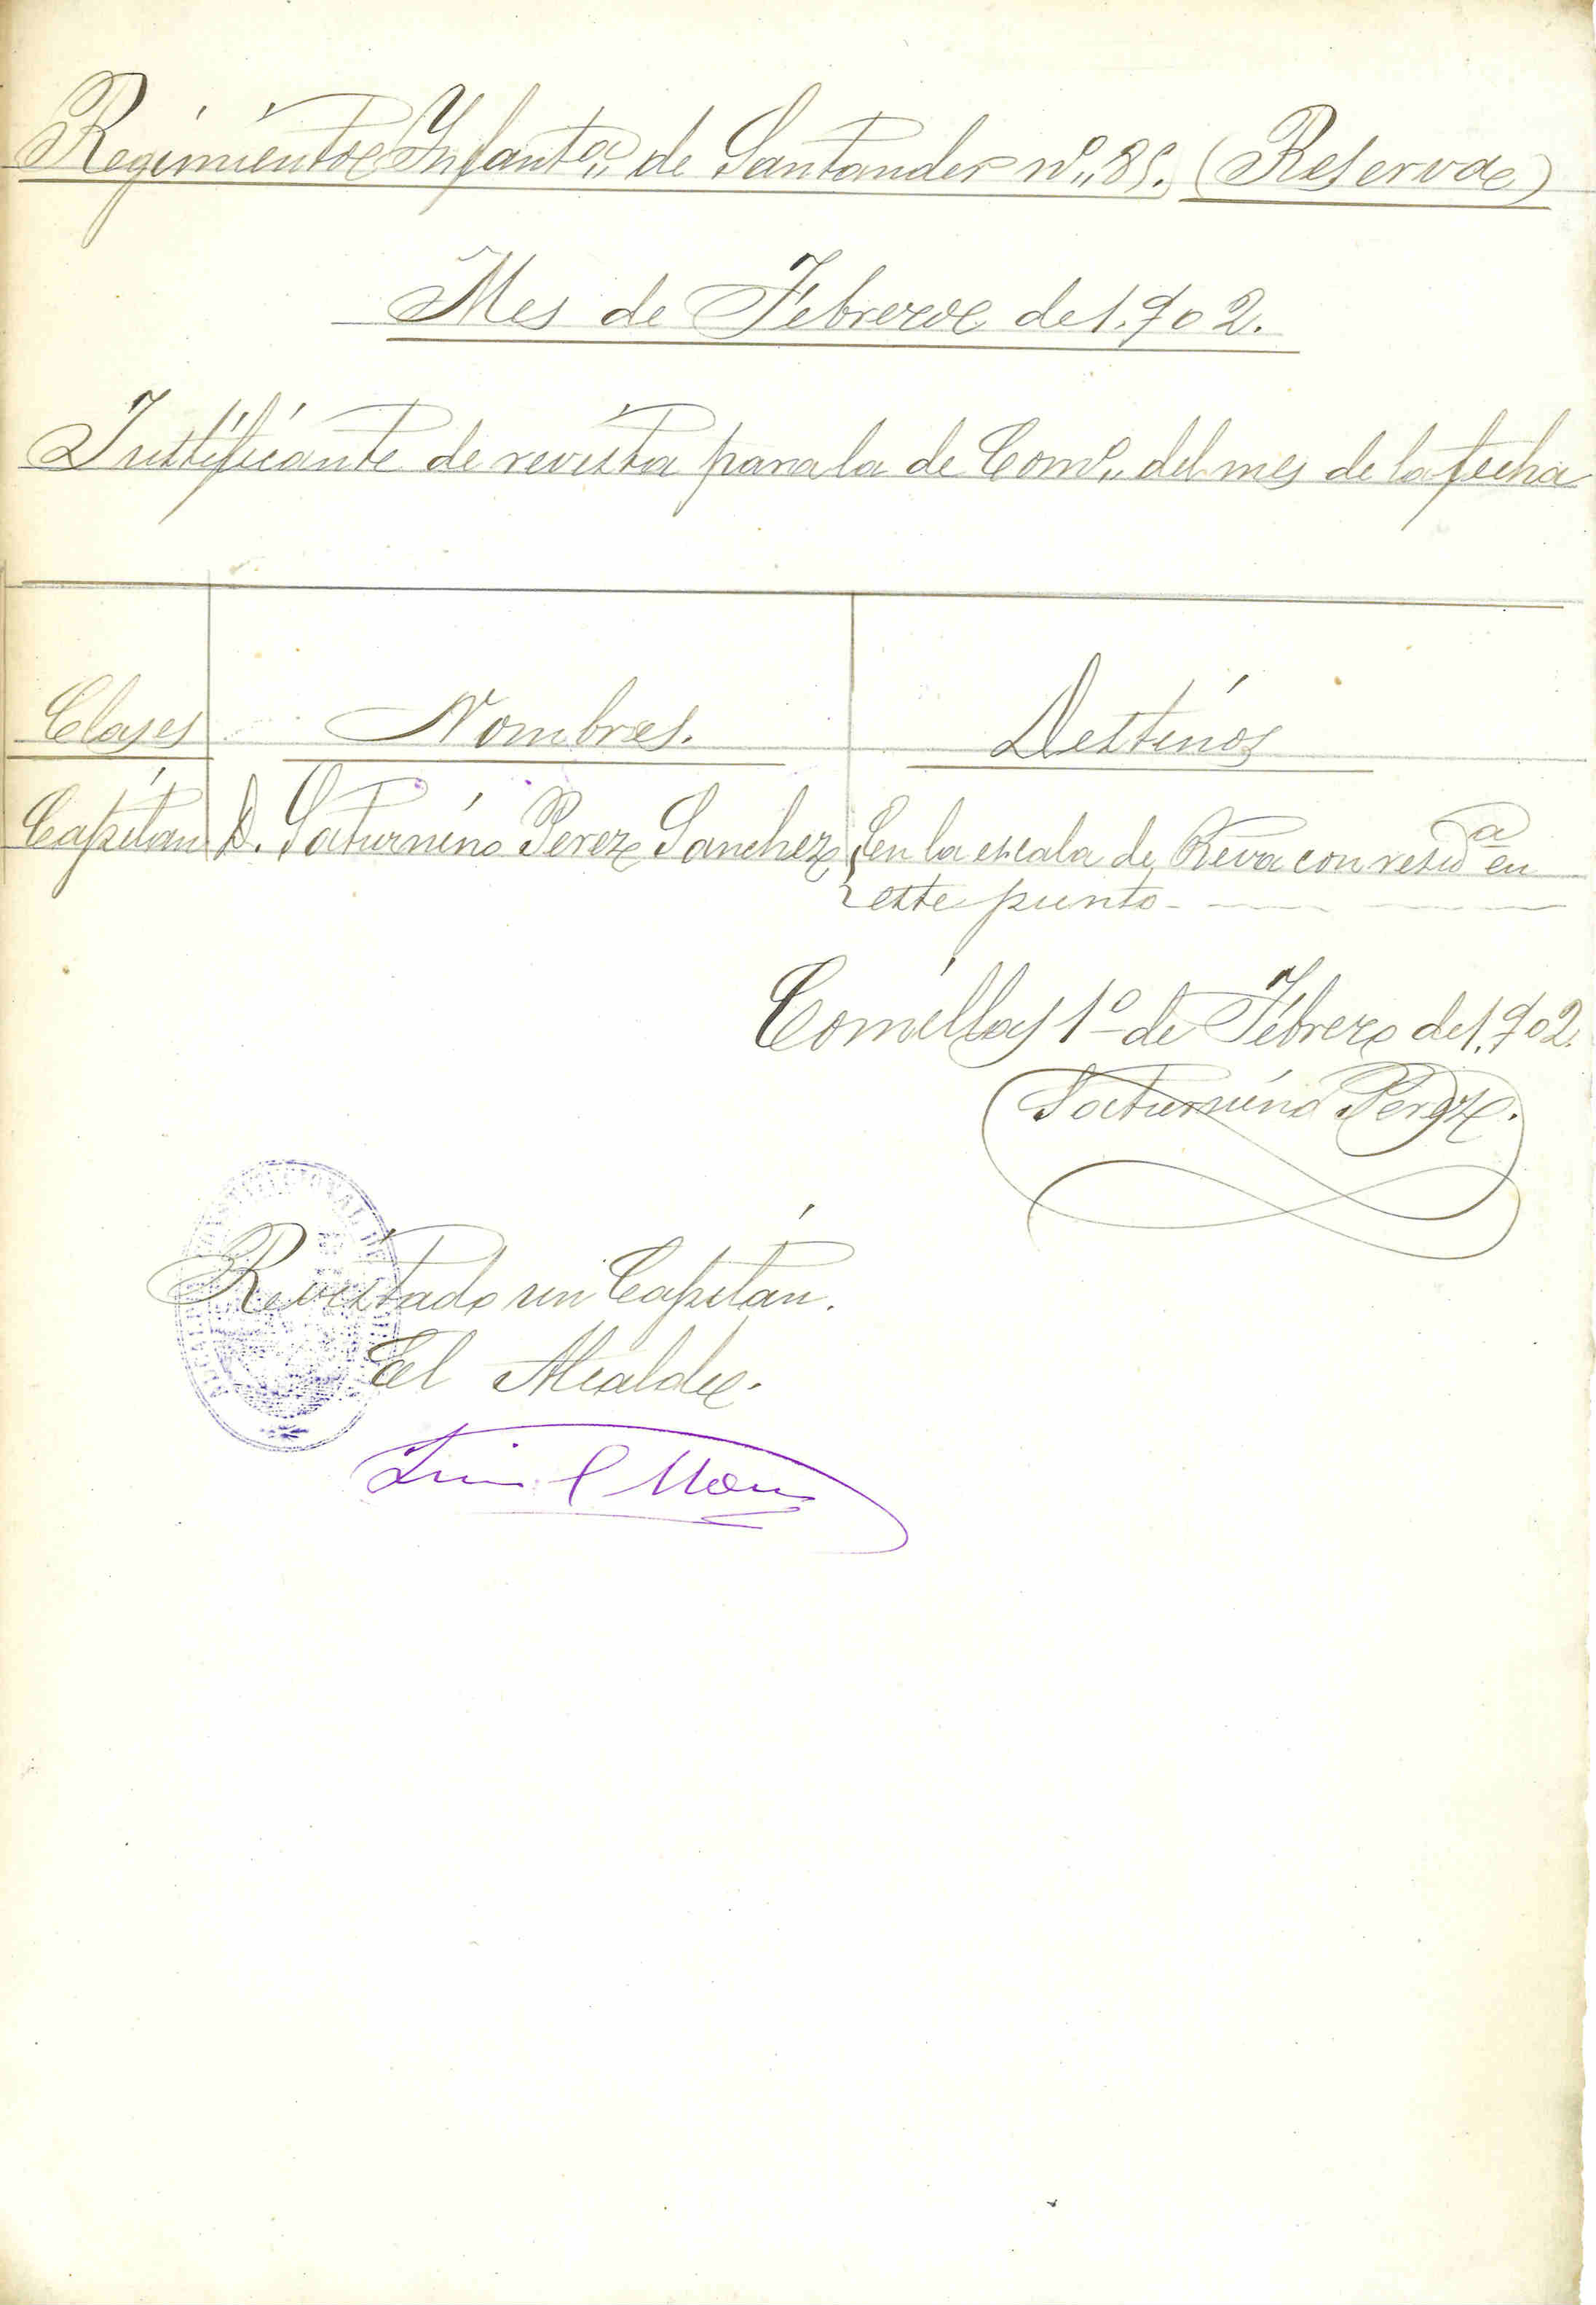 Regimiento Infant.ª de Santander nº 85. (Reserva)
Mes de Febrero de 1.902.
Justificante de revista para la de Com.º del mes de la fecha
Clases Nombres. Destinos
Capitan D. Saturnino Perez Sanchez En la escala de Rva con resid.ª en
este punto
Comillas 1º de Febrero de 1.902.
Saturnino Perez.
Revistado un Capitán.
El Alcalde.